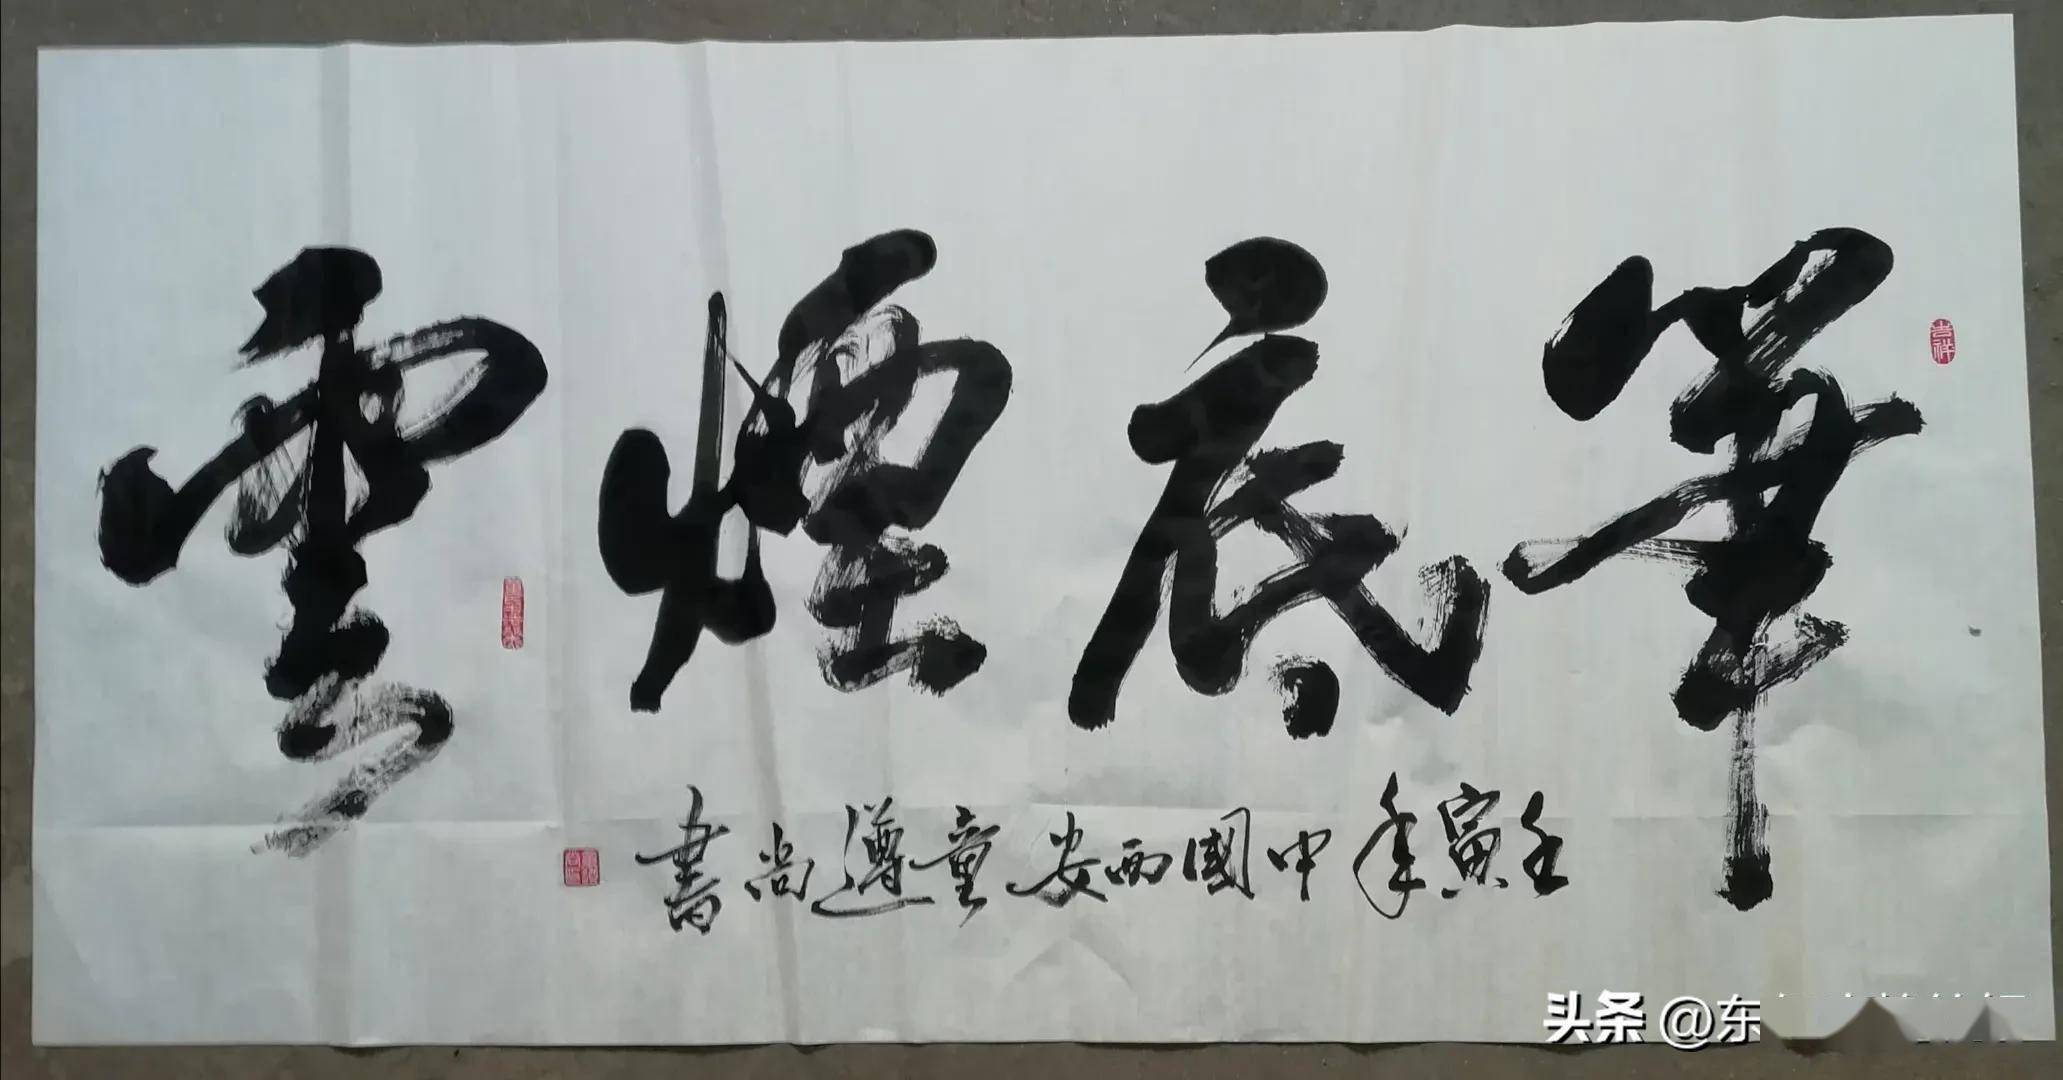 筆底煙雲
壬寅年中國西安童遵尚書
吉祥
头条 @东